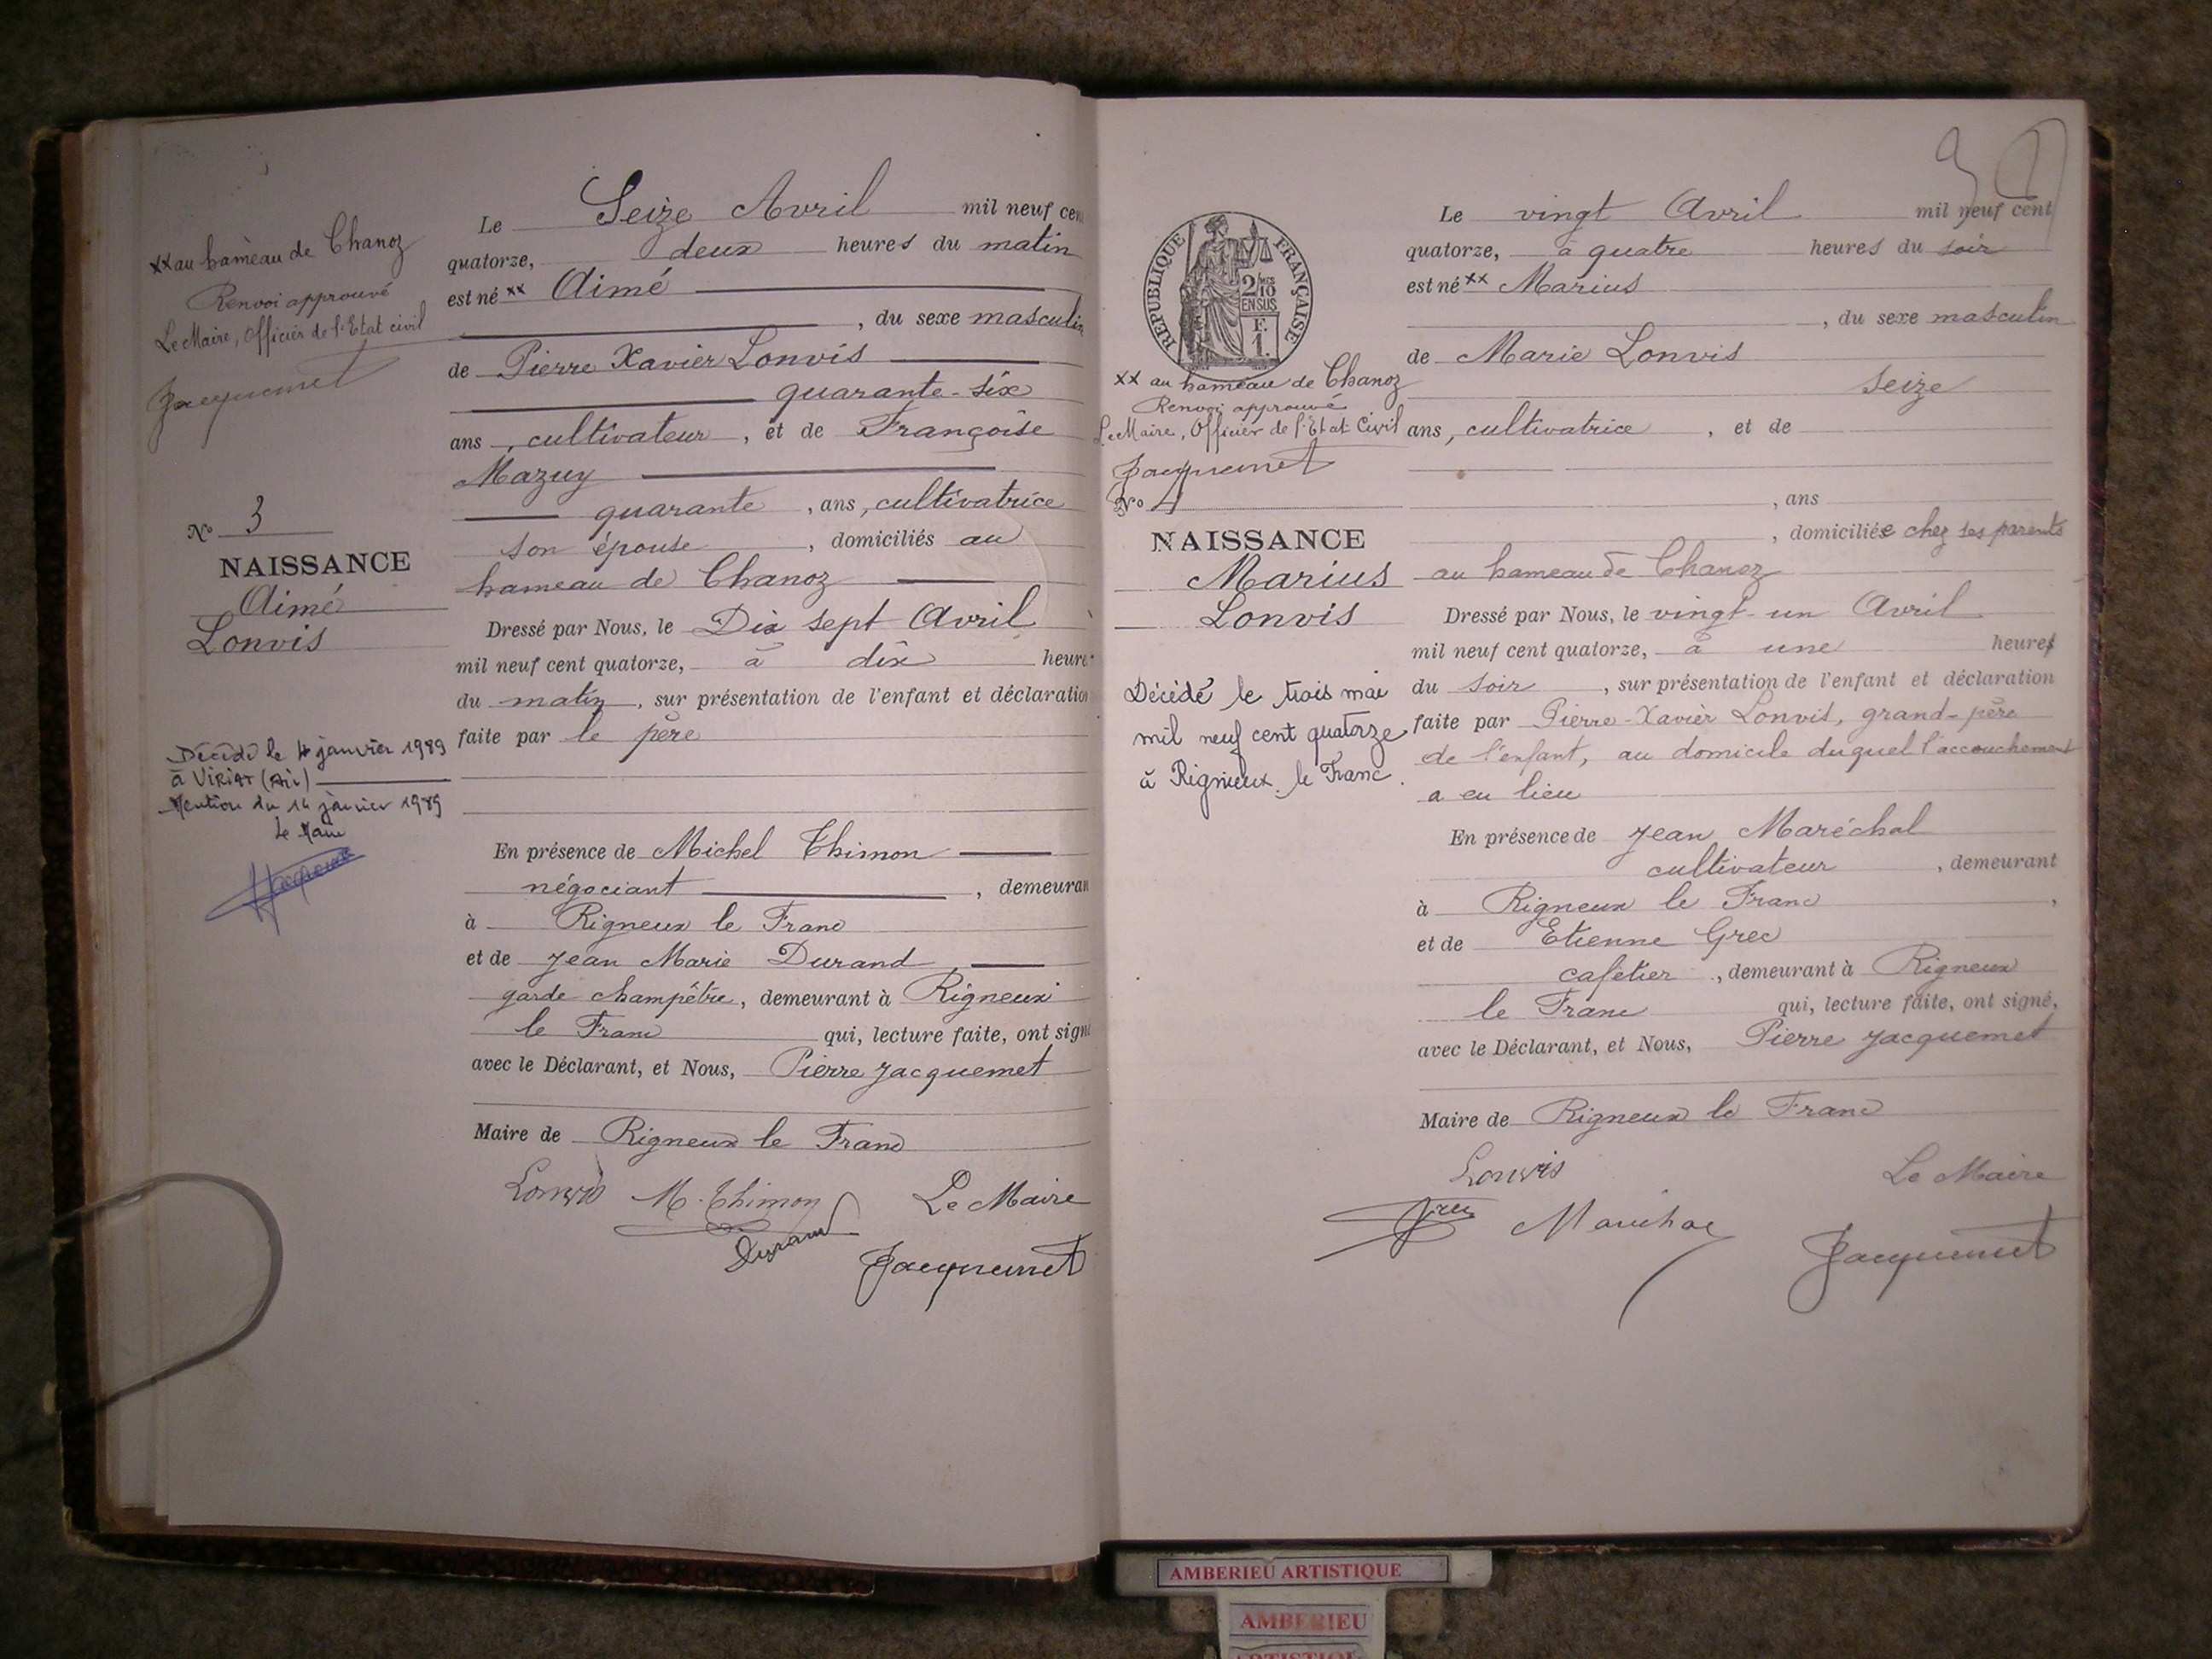 xx au hameau de Chanoz
Renvoi approuvé
Le Maire, Officier de l'Etat civil
Jacquemet
No 3
NAISSANCE
Aimé
Lonvis
Décédé le 4 janvier 1989
à VIRIAT (Ain)
Mention du 14 janvier 1989
Le Maire
Le Seize Avril mil neuf cen
quatorze, deux heures du matin
est né xx Aimé
, du sexe masculin
de Pierre Xavier Lonvis
quarante-six
ans, cultivateur, et de Françoise
Mazuy
quarante, ans, cultivatrice
son épouse, domiciliés au
hameau de Chanoz
Dressé par Nous, le Dix sept Avril
mil neuf cent quatorze, à dix heures
du matin, sur présentation de l'enfant et déclaration
faite par le père
En présence de Michel Thimon
négociant, demeuran
à Rigneux le Franc
et de Jean Marie Durand
garde champêtre, demeurant à Rigneux
le Franc qui, lecture faite, ont signé
avec le Déclarant, et Nous, Pierre Jacquemet
Maire de Rigneux le Franc
Lonvis M. Thimon Le Maire
Durand
Jacquemet
REPUBLIQUE FRANÇAISE
2/10
EN SUS
F.
1.
xx au hameau de Chanoz
Renvoi approuvé
Le Maire, Officier de l'Etat Civil
Jacquemet
No 4
NAISSANCE
Marius
Lonvis
Décédé le trois mai
mil neuf cent quatorze
à Rignieux le Franc.
Le vingt Avril mil neuf cent
quatorze, à quatre heures du soir
est né xx Marius
, du sexe masculin
de Marie Lonvis
seize
ans, cultivatrice, et de
, ans
, domiciliée chez ses parents
au hameau de Chanoz
Dressé par Nous, le vingt-un Avril
mil neuf cent quatorze, à une heures
du soir, sur présentation de l'enfant et déclaration
faite par Pierre-Xavier Lonvis, grand-père
de l'enfant, au domicile duquel l'accouchement
a eu lieu
En présence de Jean Maréchal
cultivateur, demeurant
à Rigneux le Franc,
et de Etienne Grec
cafetier, demeurant à Rigneux
le Franc qui, lecture faite, ont signé,
avec le Déclarant, et Nous, Pierre Jacquemet
Maire de Rigneux le Franc
Lonvis Le Maire
Grec Maréchal
Jacquemet
AMBERIEU ARTISTIQUE
AMBERIEU
ARTISTIQUE